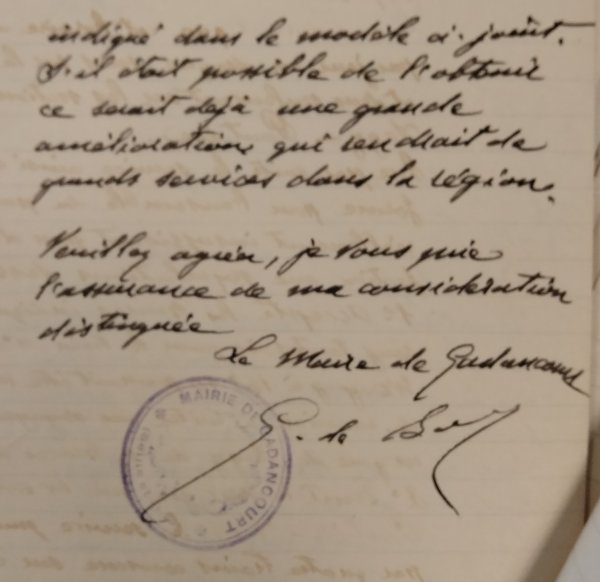 indiqué dans le modèle ci-joint.
S'il était possible de l'obtenir
ce serait déjà une grande
amélioration qui rendrait de
grands services dans la région.
Veuillez agréer, je vous prie
l'assurance de ma consideration
distinguée
Le Maire de Gadancourt
MAIRIE DE GADANCOURT
G. le